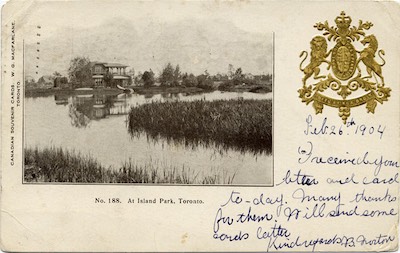 CANADIAN SOUVENIR CARDS. W. G. MACFARLANE.
TORONTO.
No. 188. At Island Park, Toronto.
Feb 26th 1904
I received your
letter and card
to-day. Many thanks
for them. Will send some
cards latter
Kind regards B. Norton